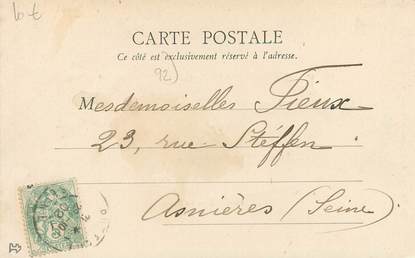 CARTE POSTALE
Ce côté est exclusivement réservé à l'adresse.
92)
Mesdemoiselles Fieux
23, rue Stéffen
Asnières (Seine)